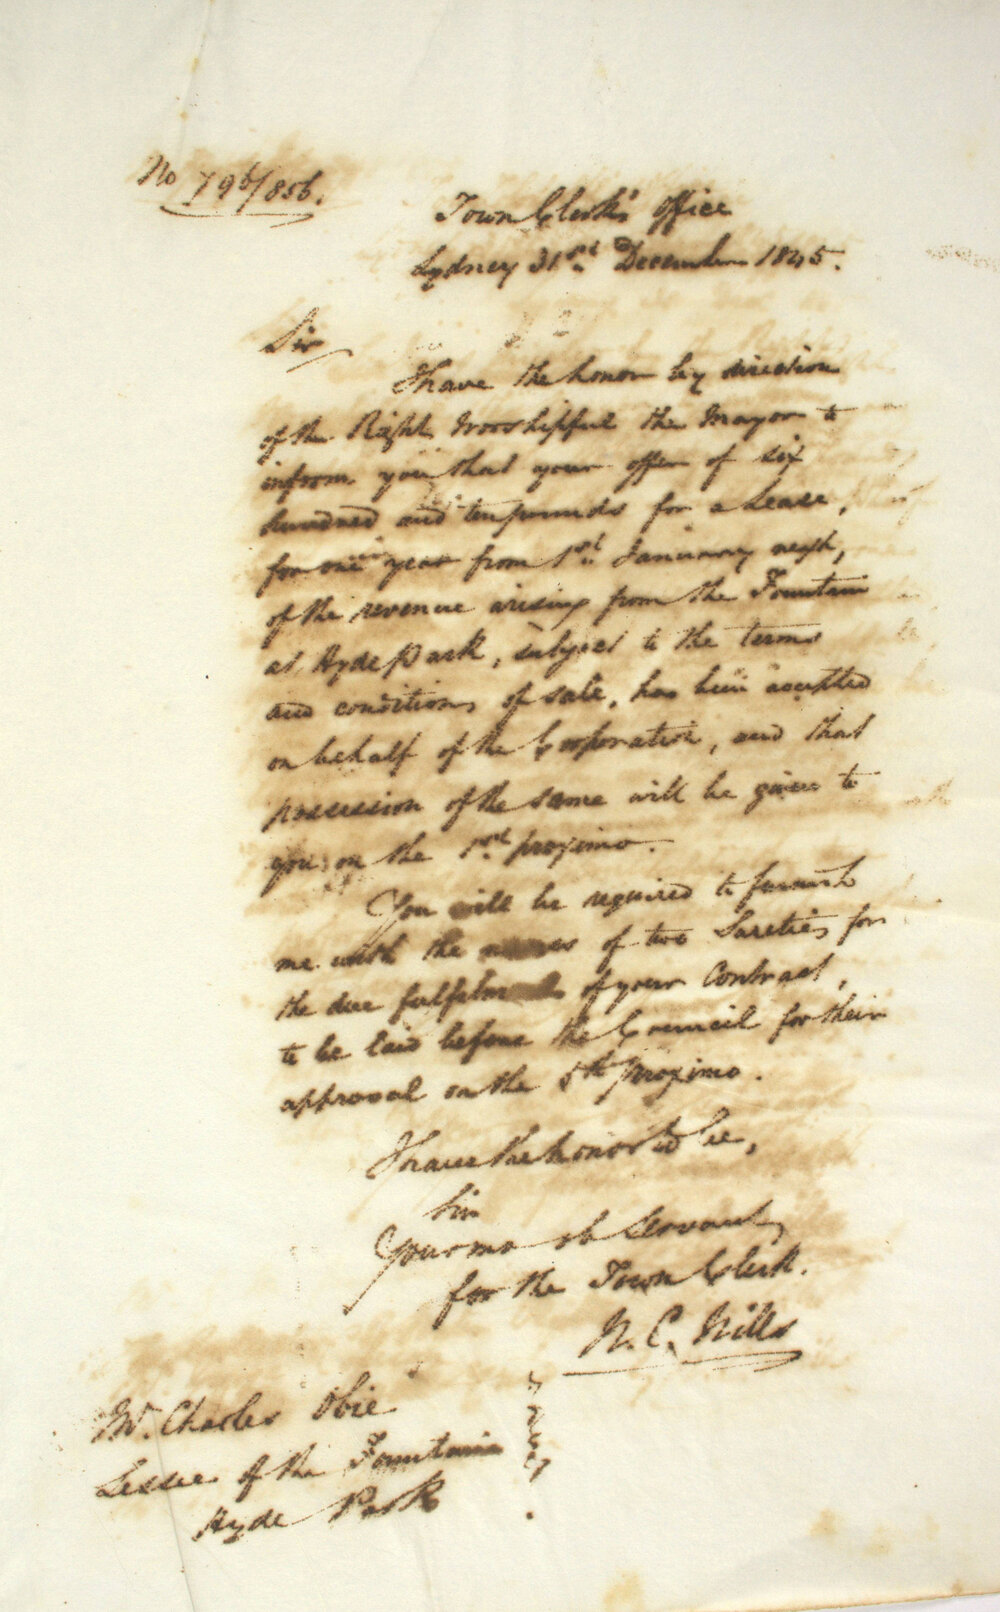 No 796/856.
Town Clerk's Office
Sydney 31st December 1845.
Sir
I have the honor by direction
of the Right Worshipful the Mayor to
inform you that your offer of six
hundred and ten pounds for a Lease,
for one year from 1st January next,
of the revenue arising from the Fountain
at Hyde Park, subject to the terms
and conditions of sale, has been accepted
on behalf of the Corporation, and that
possession of the same will be given to
you on the 1st proximo.
You will be required to furnish
me with the names of two Sureties for
the due fulfilment of your Contract,
to be laid before the Council for their
approval on the 5th proximo.
I have the honor to be,
Sir
Your mo ob Servant,
for the Town Clerk.
Mr. Charles Obie
Lessee of the Fountain
Hyde Park